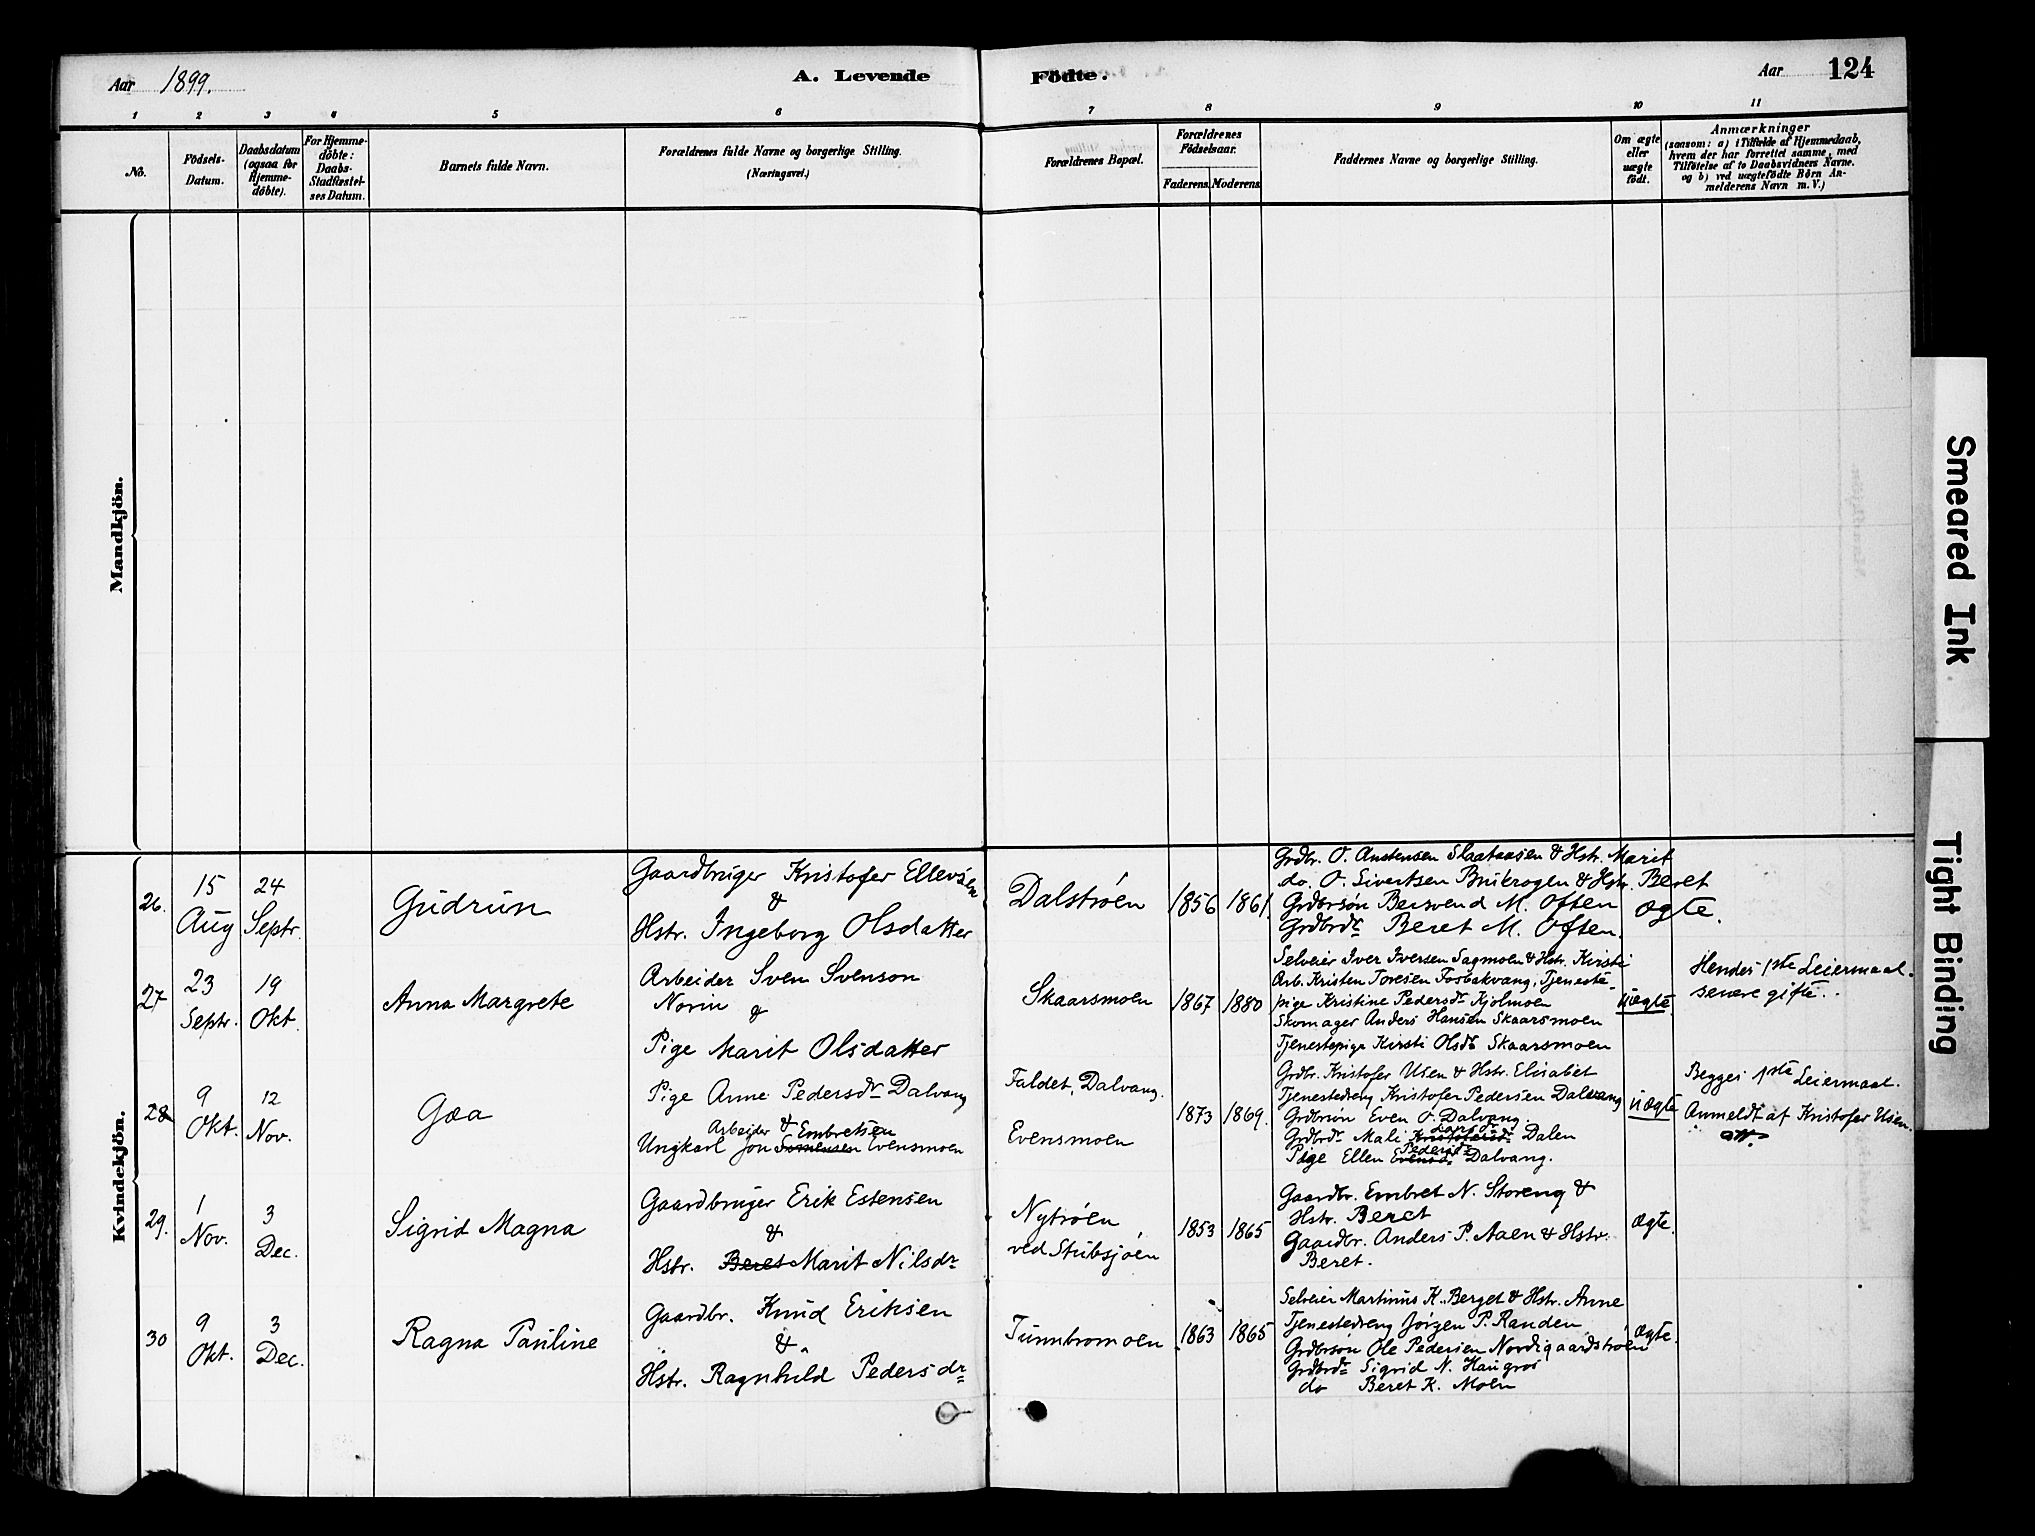 Aar 1899.
A. Levende
Födte.
Aar
124
1 2 3 4 5 6 7 8 9 10 11
No.
Födsels-
Datum.
Daabsdatum
(ogsaa for
Hjemme-
döbte).
For Hjemme-
döbte:
Daabs-
Stadfæstel-
ses Datum.
Barnets fulde Navn.
Forældrenes fulde Navne og borgerlige Stilling.
(Næringsvei.)
Forældrenes Bopæl.
Forældrenes
Födselsaar.
Faderens.
Moderens.
Faddernes Navne og borgerlige Stilling.
Om ægte
eller
uægte
födt.
Anmærkninger
(saasom: a) i Tilfælde af Hjemmedaab,
hvem der har forrettet samme, med
Tilföielse af to Daabsvidners Navne.
og b) ved uægtefödte Börn An-
melderens Navn m. V.)
Mandkjön.
Kvindekjön.
26.
15
Aug
24
Septr.
Gudrun
Gaardbruger Kristofer Ellevsen
&
Hstr. Ingeborg Olsdatter
Dalströen
1856
1861.
Grdbr. O. Anstensen Slaataasen & Hstr. Marit
do. O. Sivertsen Brukrogen & Hstr. Beret
Grdbrsön Bersvend M. Öften
Grdbrdr Beret M. Öften.
ægte.
27
23
Septr.
19
Okt.
Anna Margrete
Arbeider Sven Svenson
Norin &
Pige Marit Olsdatter
Skaarsmoen
1867
1880
Selveier Iver Iversen Sagmoen & Hstr. Kirsti
Arb. Kristen Toresen Fosbakvang, Tjeneste-
pige Kristine Pedersdr Kjölmoen
Skomager Anders Hansen Skaarsmoen
Tjenestepige Kirsti Olsdr Skaarsmoen
uægte
Hendes 1ste Leiermaal.
senere gifte.
28
9
Okt.
12
Nov.
Gæa
Pige Anne Pedersdr Dalvang
Arbeider & Embretsen
Ungkarl Jon Evensmoen
Faldet, Dalvang.
Evensmoen
1873
1869.
Grdbr. Kristofer Utsen & Hstr. Elisabet
Tjenestedreng Kristofer Pedersen Dalvang
Grdbrsön Even O. Dalvang.
Larsdr
Grdbrdr Mali Kristofersdr Dalen
Pedersdr
Pige Ellen Evensdr Dalvang.
uægte
Begges 1ste Leiermaal.
Anmeldt af Kristofer Utsen.
29.
1
Nov.
3
Dec.
Sigrid Magna
Gaardbruger Erik Estensen
&
Hstr. Beret Marit Nilsdr
Nytröen
ved Stubsjöen
1853
1865
Gaardbr. Embret N. Storeng &
Hstr. Beret
Gaardbr. Anders P. Aaen & Hstr.
Beret.
ægte.
30
9
Okt.
3
Dec.
Ragna Pauline
Gaardbr. Knud Eriksen
&
Hstr. Ragnhild Pedersdr
Tunnbromoen
1863
1865
Selveier Martinus K. Berget & Hstr. Anne
Tjenestedreng Jörgen P. Randen
Grdbrsön Ole Pedersen Nordigaardströen
Grdbrdr Sigrid N. Haugros
do Beret K. Moen
ægte.
Smeared Ink
Tight Binding